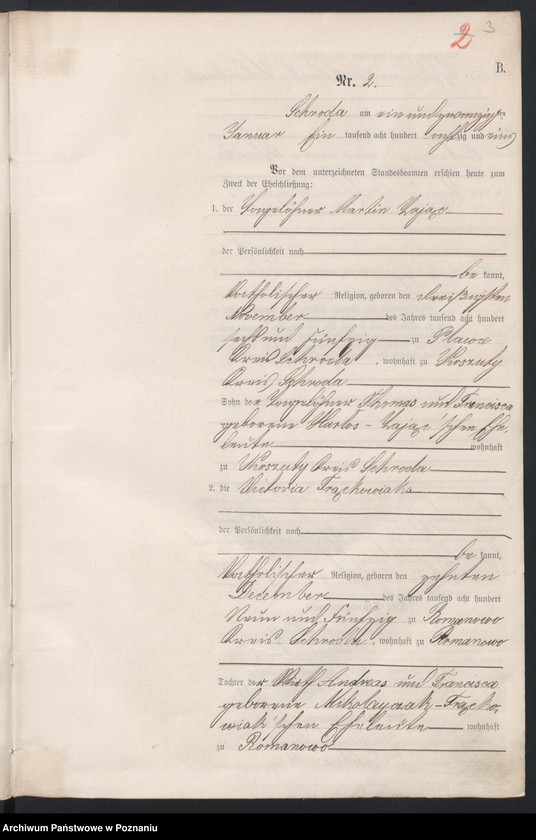 2 3
B.
Nr. 2.
Schroda am ein und zwanzigsten
Januar Ein tausend acht hundert achtzig und eins
Vor dem unterzeichneten Standesbeamten erschien heute zum
Zweck der Eheschließung:
1. der Tagelöhner Martin Zając
der Persönlichkeit nach
be kannt,
Katholischer Religion, geboren den dreißigsten
November des Jahres tausend acht hundert
sechs und fünfzig zu
Kreis Schroda, wohnhaft zu Koszuty
Kreis Schroda
Sohn der Tagelöhner Thomas und Francisca
geborene Zając'schen Ehe-
leute wohnhaft
zu Koszuty Kreis Schroda
2. die Victoria Frąckowiak
der Persönlichkeit nach
be kannt,
Katholischer Religion, geboren den zehnten
December des Jahres tausend acht hundert
Neun und Fünfzig zu Romanowo
Kreis Schroda, wohnhaft zu Romanowo
Tochter der Wirth Andreas und Francisca
geborene Mikołajczak-Frącko-
wiak'schen Eheleute wohnhaft
zu Romanowo
Archiwum Państwowe w Poznaniu